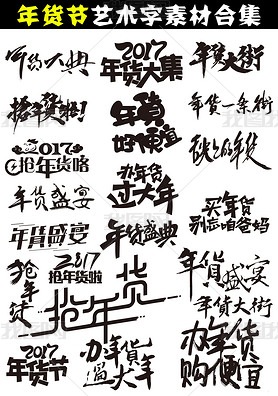 年货节艺术字素材合集
年货大典
2017
年货大集
年货大街
抢年货啦!
年货
好便宜
年货一条街
2017
抢年货咯
办年货
过大年
年货盛宴
买年货
别忘咱爸妈
年货盛宴
年货盛典
抢年货
2017
抢年货啦
抢年货
年货盛宴
年货大街
2017
年货节
办年货
过大年
办年货
购便宜